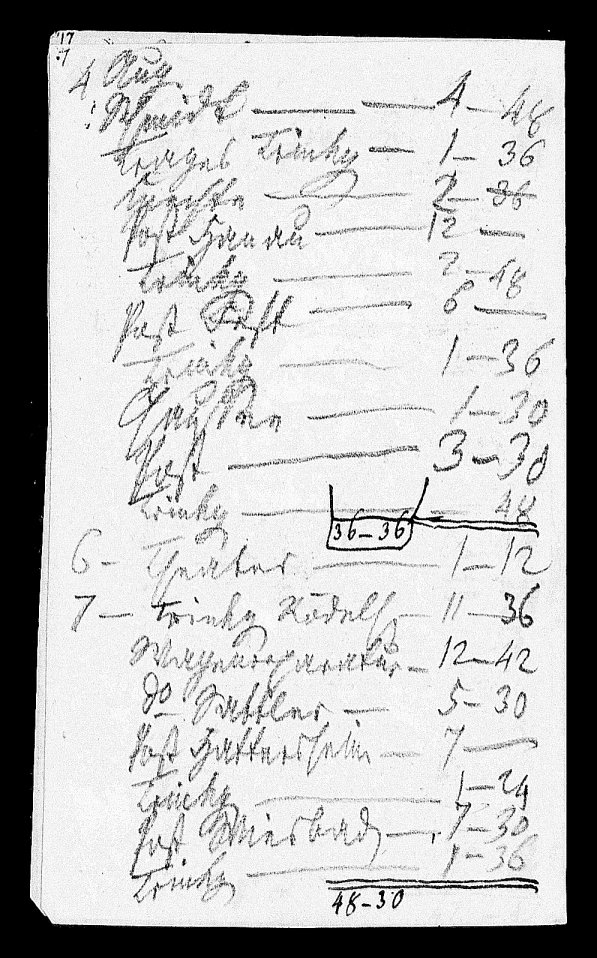 17
7
4 Aug
Schmidt — — 4 — 48
Trages Trinkg — 1 — 36
— 2 — 36
Post Hanau — 12 —
Trinkg — 2 — 48
Post — 6 —
Trinkg — 1 — 36
— 1 — 30
Post — 3 — 30
Trinkg — 48
36 — 36
6 — Theater — 1 — 12
7 — Trinkg Rödelh — 11 — 36
Wagenreparatur — 12 — 42
do Sattler — 5 — 30
Post Hattersheim — 7 —
Trinkg — 1 — 24
Post Wiesbad — 7 — 30
Trinkg — 1 — 36
48 — 30